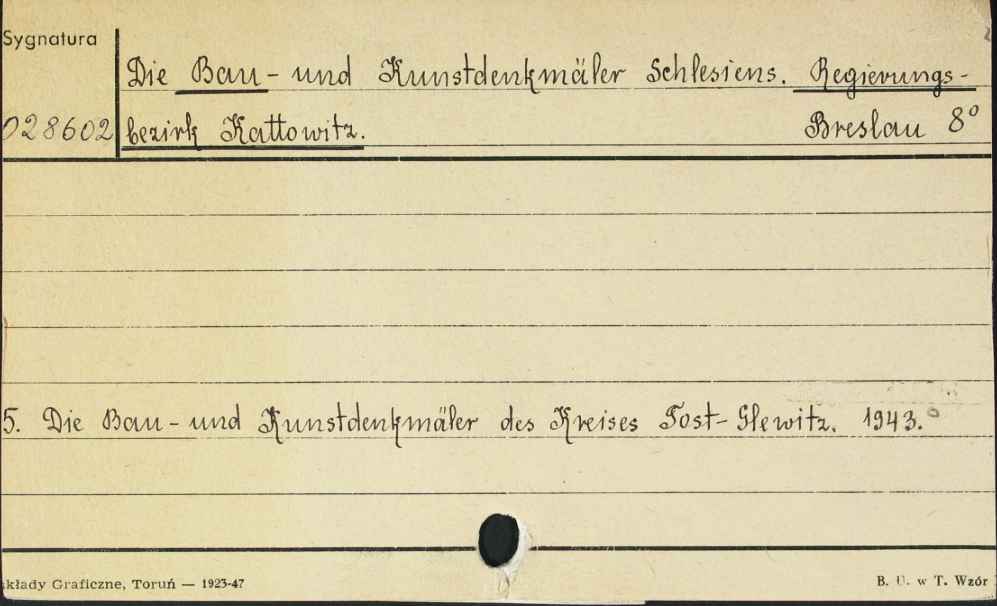 Sygnatura
Die Bau- und Kunstdenkmäler Schlesiens. Regierungs-
028602 bezirk Kattowitz. Breslau 8°
5. Die Bau- und Kunstdenkmäler des Kreises Tost-Glewitz. 1943.
kłady Graficzne, Toruń — 1923-47 B. U. w T. Wzór